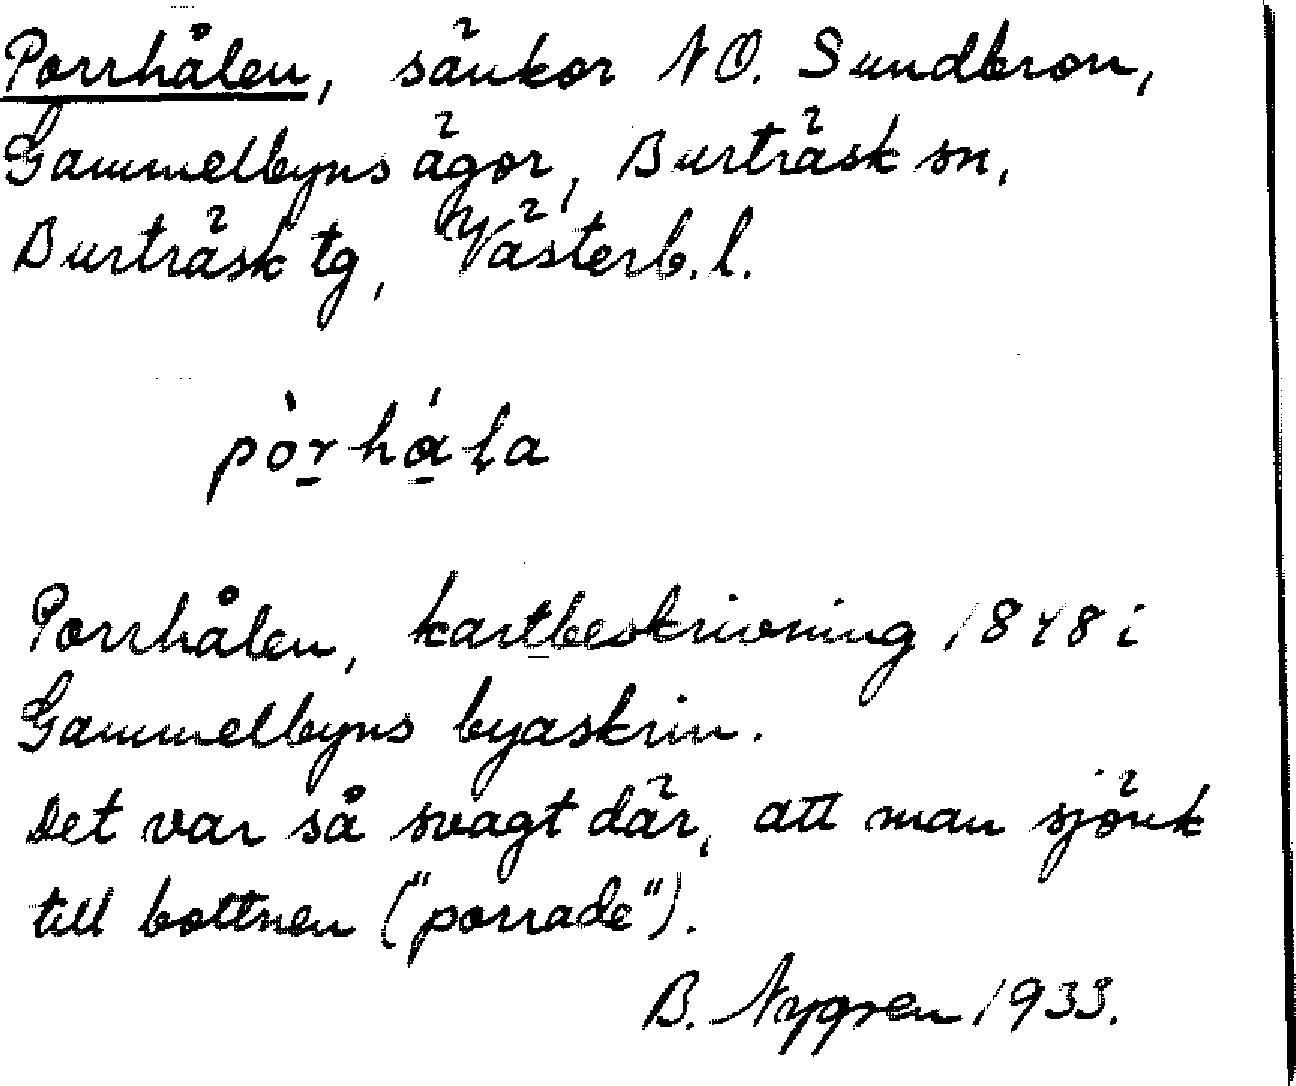 Porrhålen, sänkor NO. Sundbron,
Gammelbyns ägor, Burträsk sn,
Burträsk tg, Västerb. l.
pòr̲há̲ḷa
Porrhålen, kartbeskrivning 1848 i
Gammelbyns byaskrin.
Det var så svagt där, att man sjönk
till bottnen ("porrade").
B. Nygren 1933.